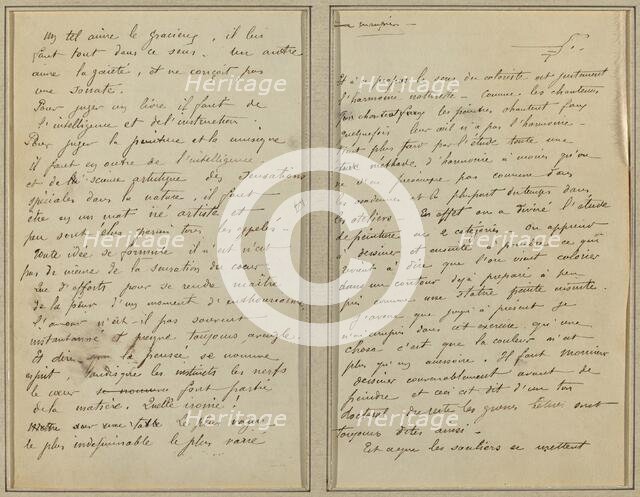 Un tel aime le gracieux, il lui
faut tout dans ce sens. Un autre
aime la gaieté, et ne conçoit pas
une sonate.
Pour juger un livre il faut de
l'intelligence et de l'instruction.
Pour juger la peinture et la musique
il faut en outre de l'intelligence
et de la science artistique des sensations
spéciales dans la nature, il faut
être en un mot né artiste et
peu sont élus parmi tous les appelés.
Toute idée se formule il n'en est
pas de même de la sensation du cœur
Que d'efforts pour se rendre maître
de la peur d'un moment d'enthousiasme.
L'amour n'est-il pas souvent
instantané et presque toujours aveugle.
Et dire que la pensée se nomme
esprit, tandis que les instincts les nerfs
le cœur font partie
de la matière. Quelle ironie!
Le plus vague
le plus indéfinissable le plus varié
Et à ce propos le sens du coloriste est justement
l'harmonie naturelle - Comme les chanteurs
les peintres chantent faux
quelquefois leur œil n'a pas l'harmonie -
plus tard par l'étude toute une
méthode d'harmonie à moins qu'on
ne s'en préoccupe pas comme dans
les académies et la plupart du temps dans
les ateliers. En effet on a divisé l'étude
de peinture en 2 catégories. On apprend
à dessiner et ensuite à peindre ce qui
revient à dire que l'on vient colorier
dans un contour déjà préparé à peu
près comme une statue peinte ensuite.
J'avoue que jusqu'à présent je
n'ai compris dans cet exercice qu'une
chose c'est que la couleur n'est
plus qu'un accessoire. Il faut monsieur
dessiner convenablement avant de
peindre et ceci est dit d'un ton
doctoral du reste les grosses bêtises sont
toujours dites ainsi.
Est-ce que les souliers se mettent
Heritage
Heritage
Heritage
Heritage
Heritage
Heritage